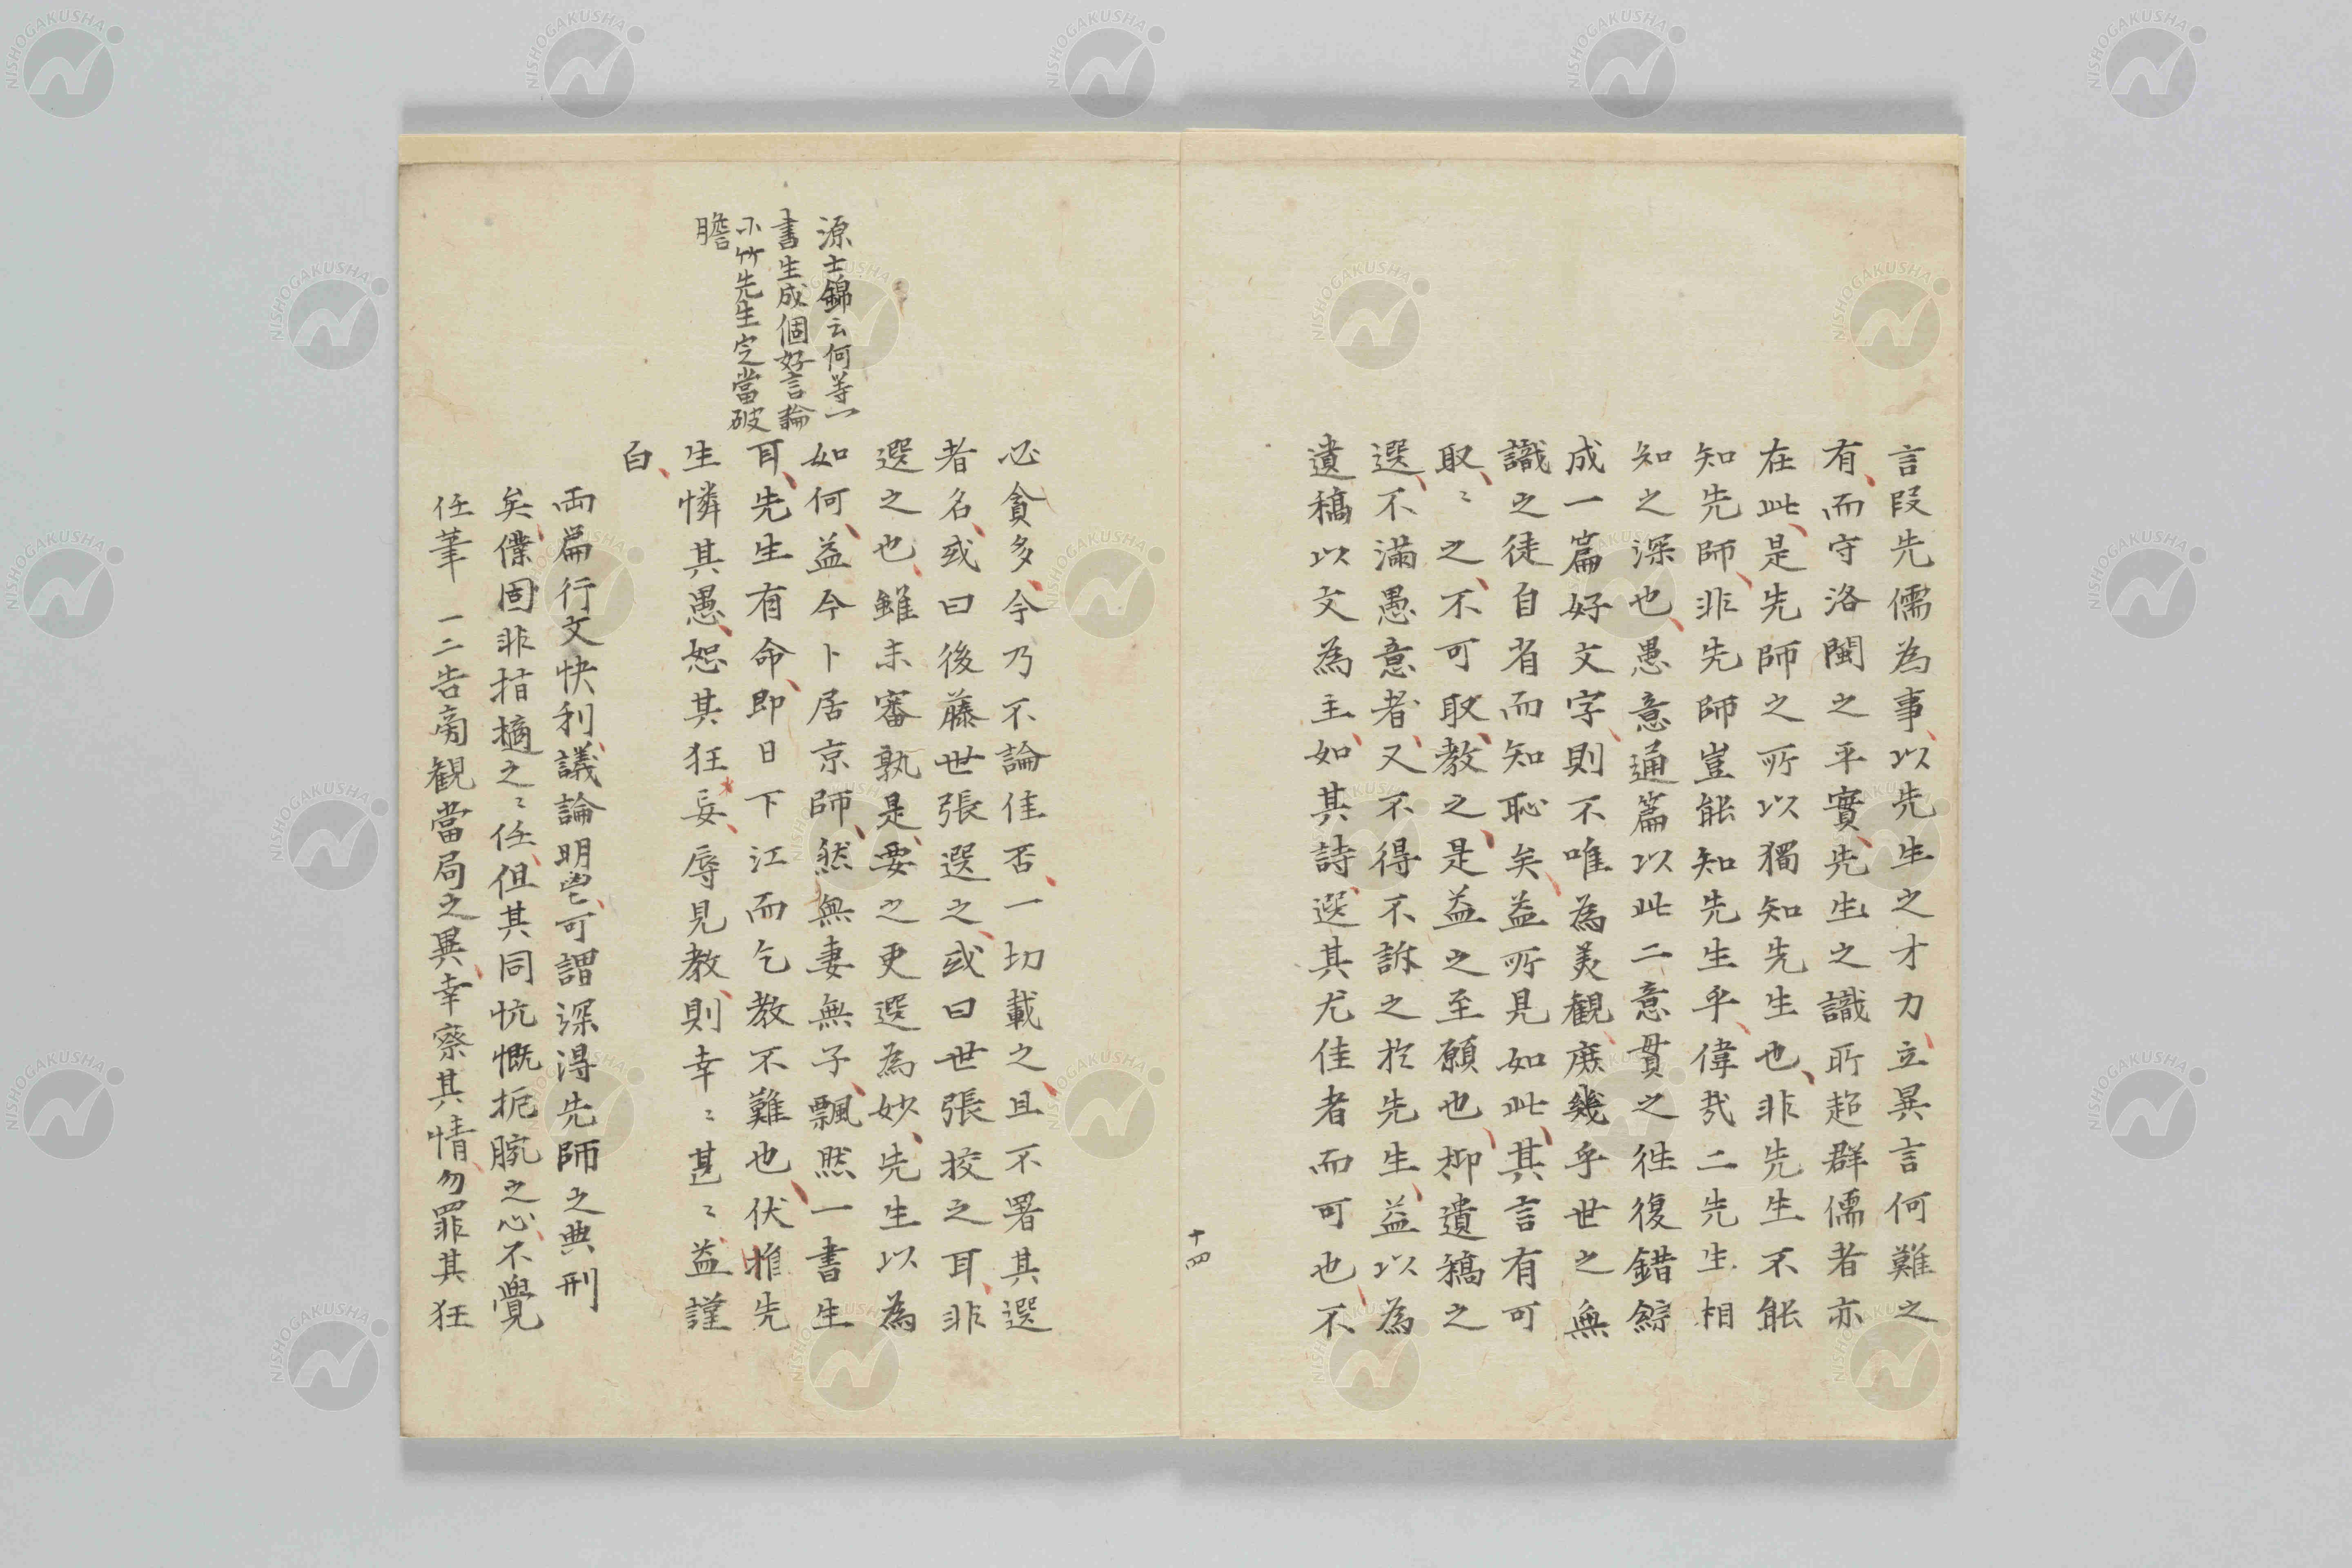 言段先儒為事以先生之才力立異言何難之
有而守洛閩之平實先生之識所超群儒者亦
在此是先師之所以獨知先生也非先生不能
知先師非先師豈能知先生乎偉哉二先生相
知之深也愚意通篇以此二意貫之往復錯綜
成一篇好文字則不唯為美觀庶幾乎世之無
識之徒自省而知恥矣益所見如此其言有可
取〻之不可取教之是益之至願也抑遺稿之
選不滿愚意者又不得不訴之於先生益以為
遺稿以文為主如其詩選其尤佳者而可也不
十四
必貪多今乃不論佳否一切載之且不署其選
者名或曰後藤世張選之或曰世張挍之耳非
選之也雖未審孰是要之更選為妙先生以為
如何益今卜居京師然無妻無子飄然一書生
耳先生有命即日下江而乞教不難也伏惟先
生憐其愚恕其狂妄辱見教則幸〻甚〻益謹
白
源士錦云何等一
書生成個好言論
小竹先生定當破
膽
両篇行文快利議論明鬯可謂深得先師之典刑
矣僕固非指摘之〻任但其同忼慨扼腕之心不覺
任筆一二告旁観當局之異幸察其情勿罪其狂
NISHOGAKUSHA